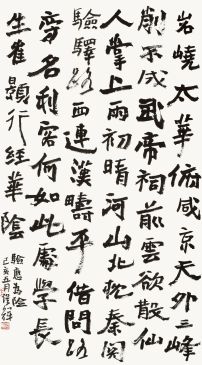 岧嶢太華俯咸京天外三峰
削不成武帝祠前雲欲散仙
人掌上雨初晴河山北枕秦關
驗驛路西連漢疇平借問路
旁名利客何如此處學長
生崔顥行經華陰
驗應為險
己亥五月